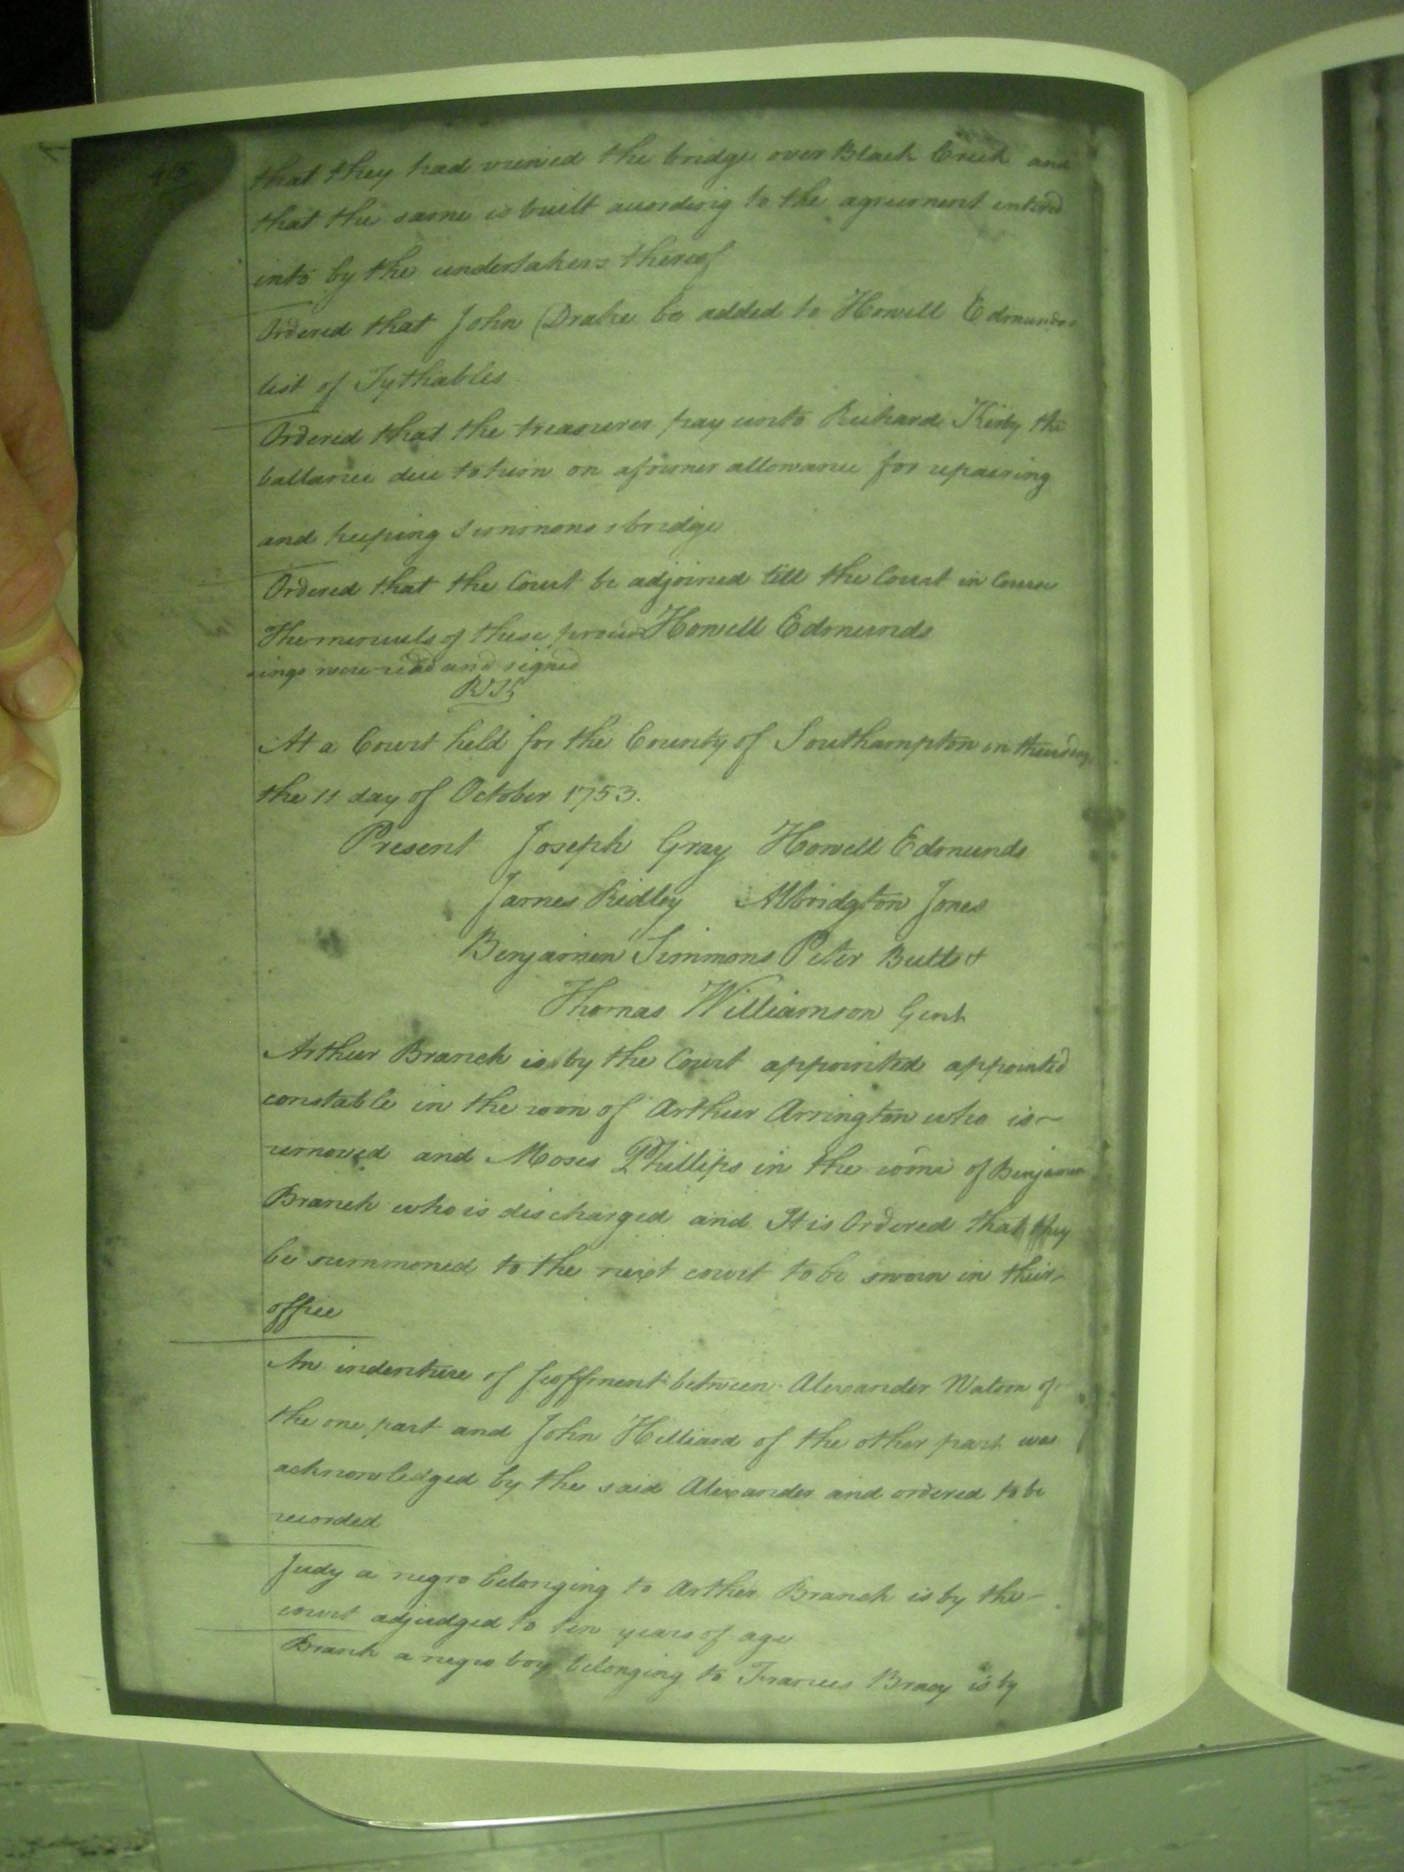 that they had viewed the bridge over Black Creek and
that the same is built according to the agreement entered
into by the undertakers thereof
Ordered that John Drake be added to Howell Edmunds
list of Tythables
Ordered that the treasurer pay unto Richard Kirby the
ballance due to him on a former allowance for repairing
and keeping Simmons's bridge
Ordered that the Court be adjoined till the Court in Course
The minuits of these proceed Howell Edmunds
ings were read and signed
At a Court held for the County of Southampton on thursday
the 11 day of October 1753.
Present Joseph Gray Howell Edmunds
James Ridley Albridgton Jones
Benjamin Simmons Peter Butts &
Thomas Williamson Gent
Arthur Branch is by the Court appointed appointed
constable in the room of Arthur Arrington who is
removed and Moses Phillips in the room of Benjamin
Branch who is discharged and It is Ordered that they
be summoned to the next court to be sworn in their
office
An indenture of feoffment between Alexander Watson of
the one part and John Hilliard of the other part was
acknowledged by the said Alexander and ordered to be
recorded
Judy a negro belonging to Arther Branch is by the
court adjudged to ten years of age
Branch a negro boy belonging to Frances Bracy is by